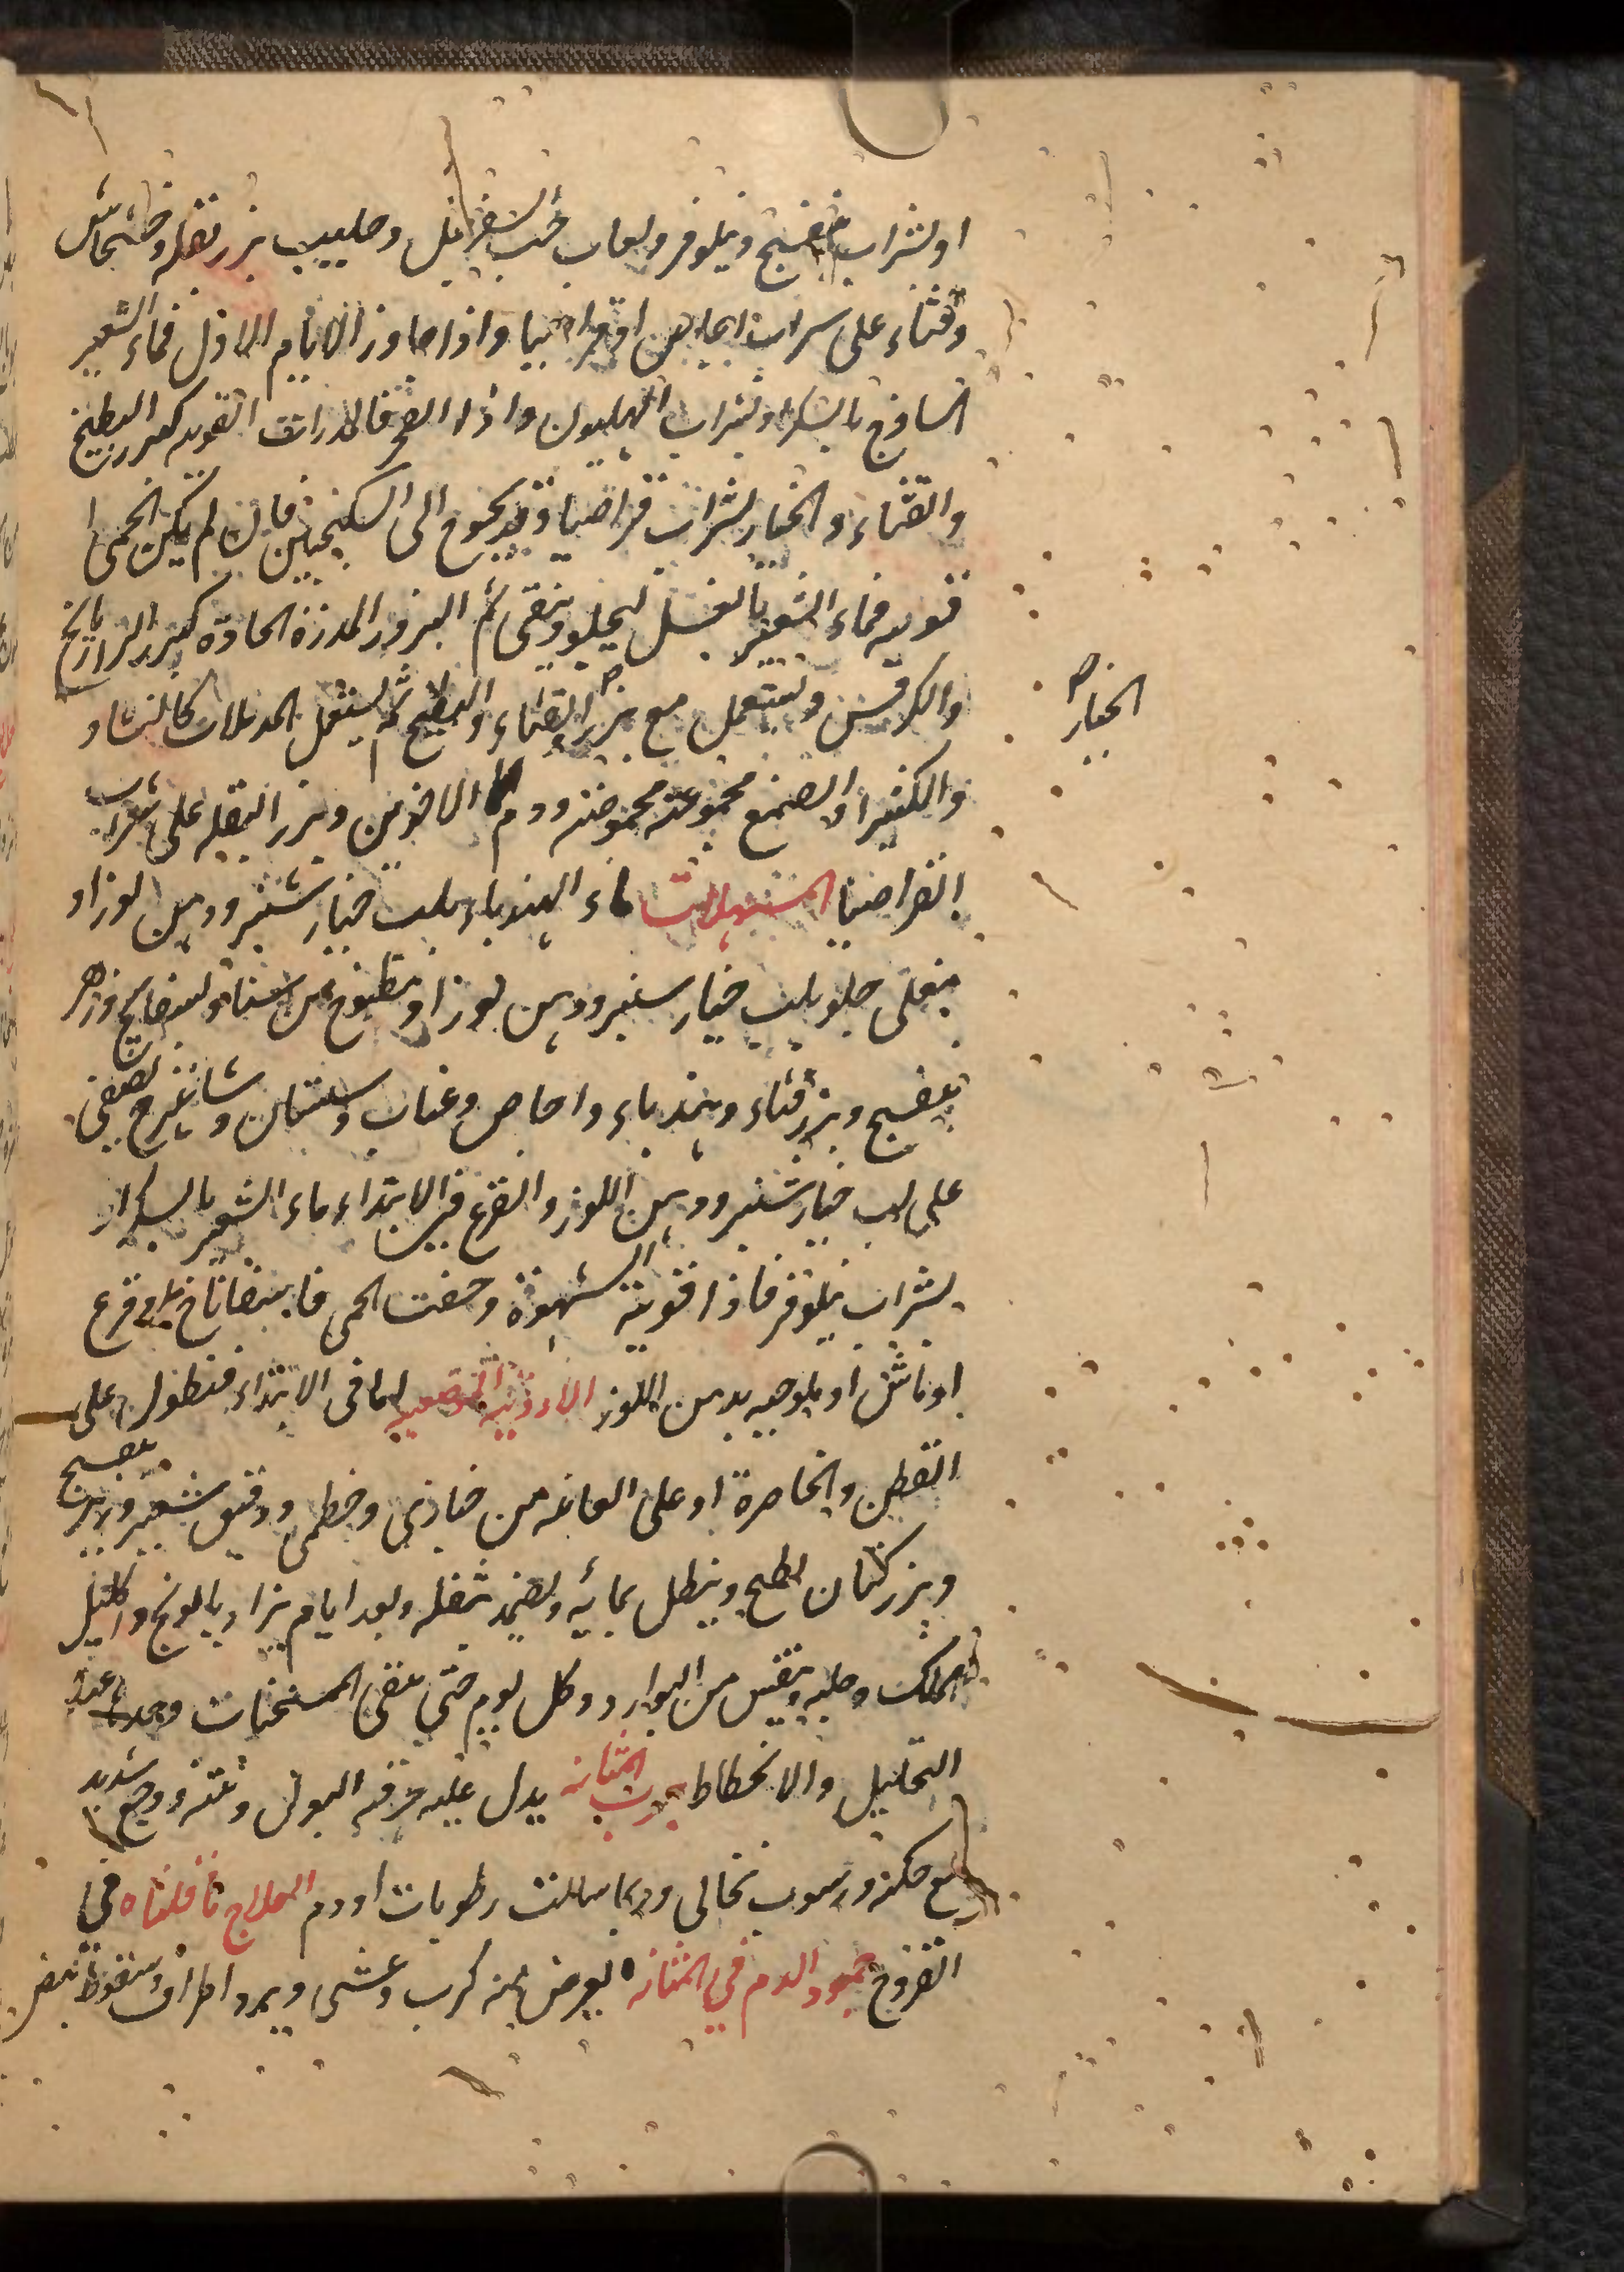 او بشراب بنفسج ونيلوفر ولعاب حب السفرجل وحليب بزر بقله وخشخاش
وقثاء على شراب اجاص او قراصيا واذا جاوز الايام الاول فماء الشعير
الساذج بالسكر او بشراب الهليون واذا انفجر فالمدرات القويه كبزر البطيخ
والقثاء والخيار بشراب قراصيا وقد يحوج الى السكنجبين فان لم يكن الحمى
قويه فماء الشعير بالعسل ليجلو وينقى ثم البزور المدرة الحادة كبزر الرازيانج
والكرفس ويستعمل مع بزر القثاء والبطيخ ثم ليستعمل المدملات كالنشاء
الخيار صح
والكثيرا والصمغ مجموعته محموضته ودم الاخوين وبزر البقله على شراب
القراصيا المستسهلات ماء الهندباء بلب خيار شنبر ودهن لوز او
بنقلى حلو بلب خيار شنبر ودهن لوز او مطبوخ من سنا وبسفايج وزهر
بنفسج وبزر قثاء وهندباء واجاص وعناب وسبستان وشاهترج يصفى
على لب خيار شنبر ودهن اللوز والقرع فى الابتداء ماء الشعير بالسكر او
بشراب نيلوفر فاذا قويت الشهوة وخفت الحمى فاسفاناخ او قرع
او ماش او ملوخيه بدهن اللوز الادوية الموضعيه اما فى الابتداء فنطول على
القطن والخاصرة او على العانه من خبازى وخطمى ودقيق شعير وزهر بنفسج
وبزر كتان يطبخ وينطل بمائه ويضمد بثفله وبعد ايام يزاد بابونج واكليل
الملك وحلبه وينقص من البوارد كل يوم حتى يبقى المسخنات وحدها عند
التحليل والانحطاط جرب المثانه يدل عليه حرقه البول ونتنه ووجع شديد
مع حكه ورسوب نخالى وربما سالت رطوبات او دم العلاج ما قلناه فى
القروح جمود الدم فى المثانه يعرض منه كرب وغشى وبرد اطراف وسقوط نبض